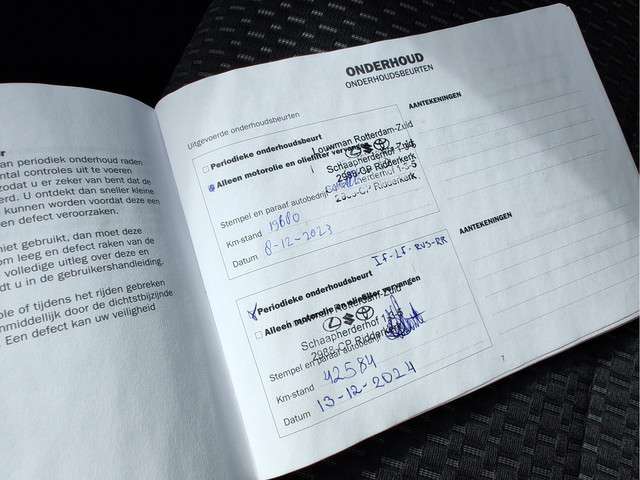 r
an periodiek onderhoud raden
ntal controles uit te voeren
zodat u er zeker van bent dat de
erd. U ontdekt dan sneller kleine
kunnen worden voordat deze een
en defect veroorzaken.
niet gebruikt, dan moet deze
om leeg en defect raken van de
volledige uitleg over deze en
dt u in de gebruikershandleiding,
ole of tijdens het rijden gebreken
nmiddellijk door de dichtstbijzijnde
Een defect kan uw veiligheid
ONDERHOUD
ONDERHOUDSBEURTEN
Uitgevoerde onderhoudsbeurten
AANTEKENINGEN
Periodieke onderhoudsbeurt
Louwman Rotterdam-Zuid
Alleen motorolie en oliefilter vervangen
Schaapherderhof 1-3-5
2988 CP Ridderkerk
Stempel en paraaf autobedrijf
Km-stand 19680
Datum 8-12-2023
AANTEKENINGEN
IF-LF-RVS-RR
Periodieke onderhoudsbeurt
Alleen motorolie en oliefilter vervangen
Schaapherderhof 1
2988 CP Ridderkerk
Stempel en paraaf autobedrijf
Km-stand 42584
Datum 13-12-2024
7